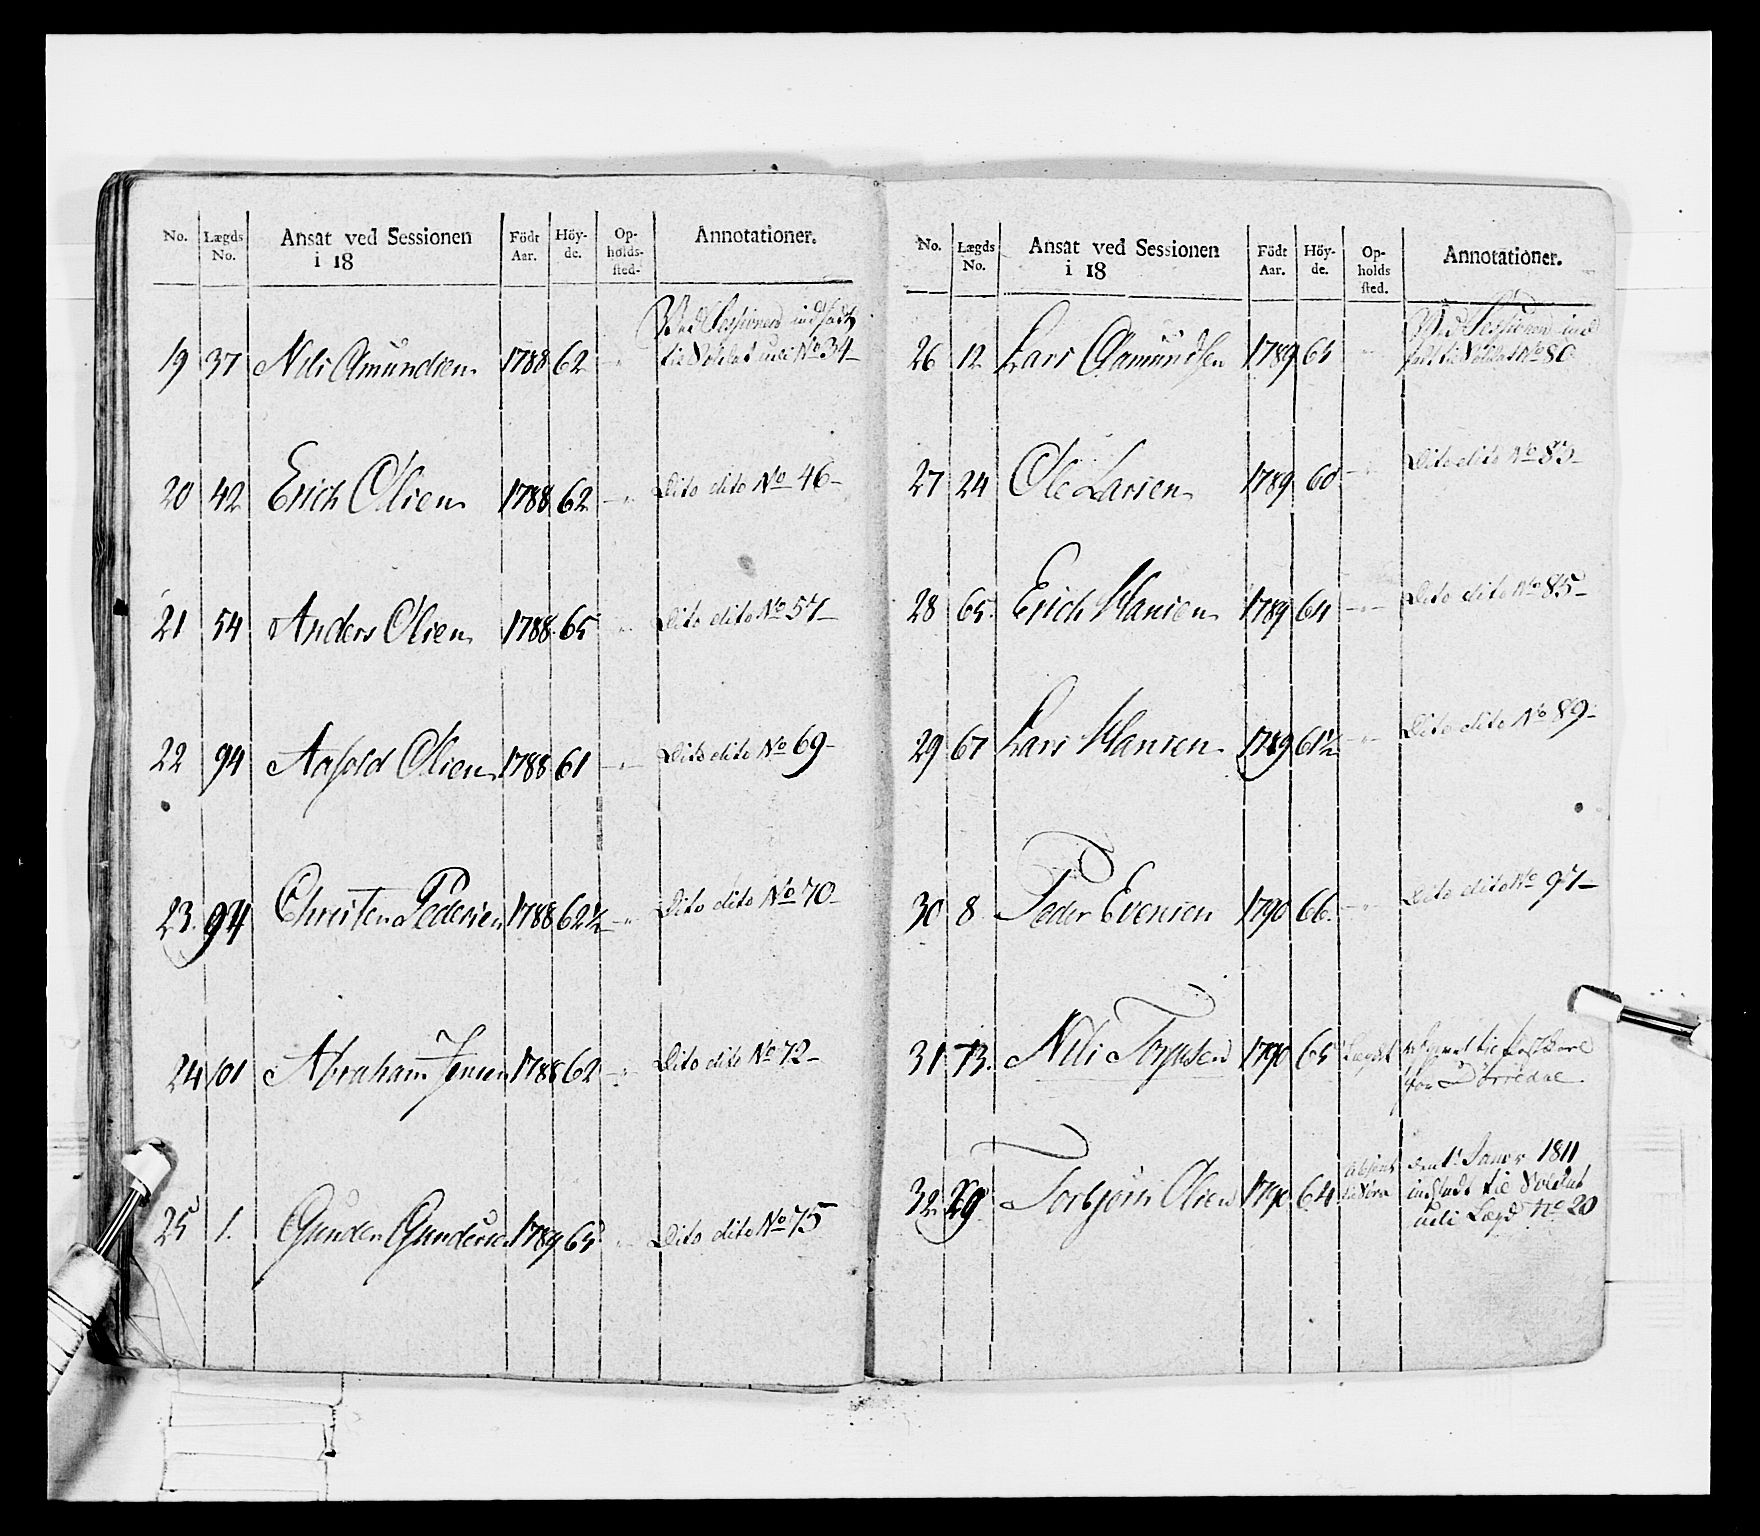 No. Lægds No. Ansat ved Sessionen i 18 Födt Aar. Höy- de. Op- holds- sted. Annotationer.
Ved Sessionen indsadt
19 37 Nils Amundsen 1788 62 - til Soldat udi No 34-
20 42 Erich Olsen 1788 62 - Dito dito No 46-
21 54 Anders Olsen 1788 65 - Dito dito No 57-
22 94 Aasold Olsen 1788 61 - Dito dito No 69-
23. 94 Christen Pedersen 1788 62½ - Dito dito No 70-
24 101 Abraham Jensen 1788 62 - Dito dito No 72-
25 1. Gunder Gundersen 1789 65 - Dito dito No 75
No. Lægds No. Ansat ved Sessionen i 18 Födt Aar. Höy- de. Op- holds sted. Annotationer.
Ved Sessionen ind
26 12 Lars Aamundsen 1789 65 - sadt til Soldat No 80
27 24 Ole Larsen 1789 60 - Dito dito No 83-
28 65. Erich Hansen 1789 64 - Dito dito No 85-
29 67 Lars Hansen 1789 61½ - Dito dito No 89-
30 8 Peder Evensen 1790 66. - Dito dito No 97-
31 73. Nils 1790 65 Lægdet
32. 29 Torbjörn Olsen 1790 64. Absent den 1. Janvr 1811
indsadt til Soldat
udi Lægd No 20